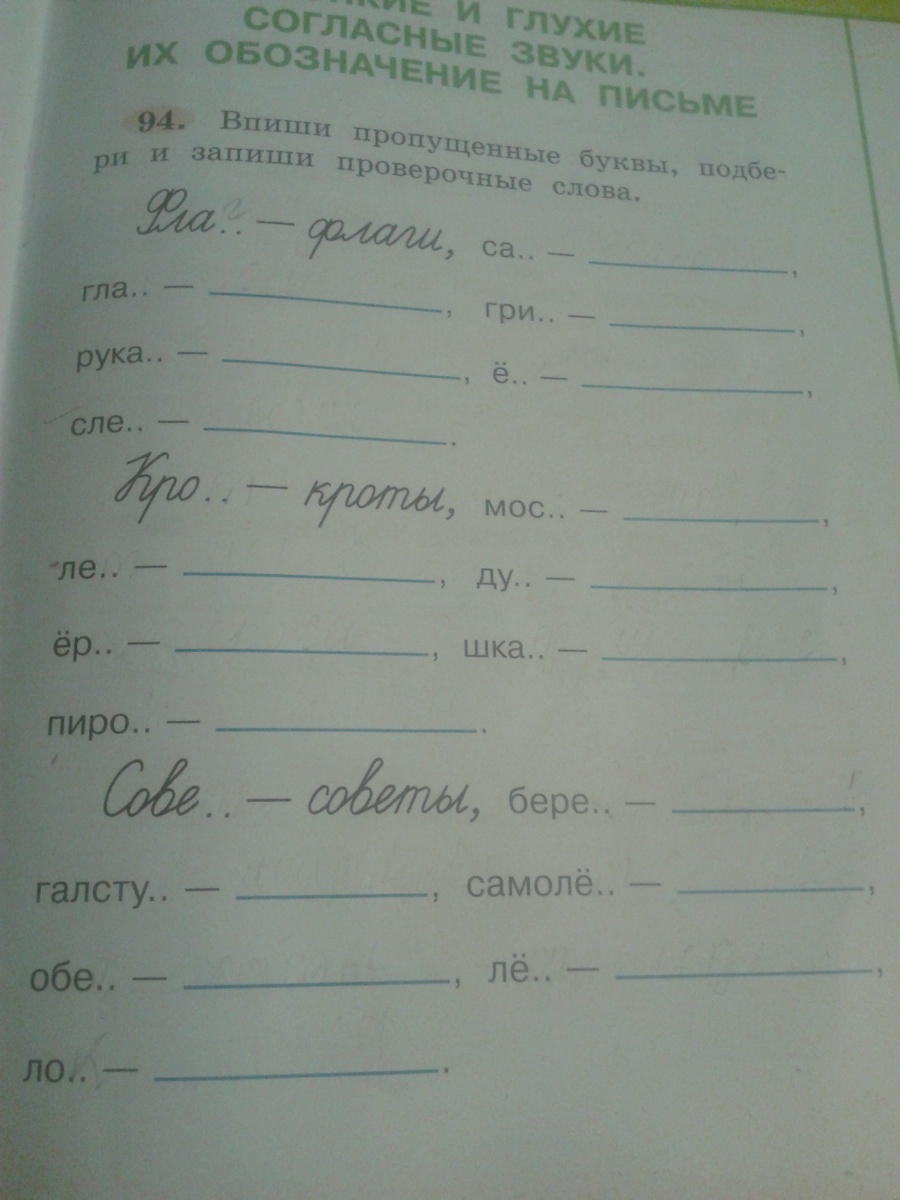 И ГЛУХИЕ
СОГЛАСНЫЕ ЗВУКИ.
ИХ ОБОЗНАЧЕНИЕ НА ПИСЬМЕ
94. Впиши пропущенные буквы, подбе-
ри и запиши проверочные слова.
Фла г.. — флаги, са.. — ,
гла.. — , гри.. — ,
рука.. — , ё.. — ,
сле.. — .
Кро.. — кроты, мос.. — ,
ле.. — , ду.. — ,
ёр.. — , шка.. — ,
пиро.. — .
Сове.. — советы, бере.. — ,
галсту.. — , самолё.. — ,
обе.. — , лё.. — ,
ло.. — .